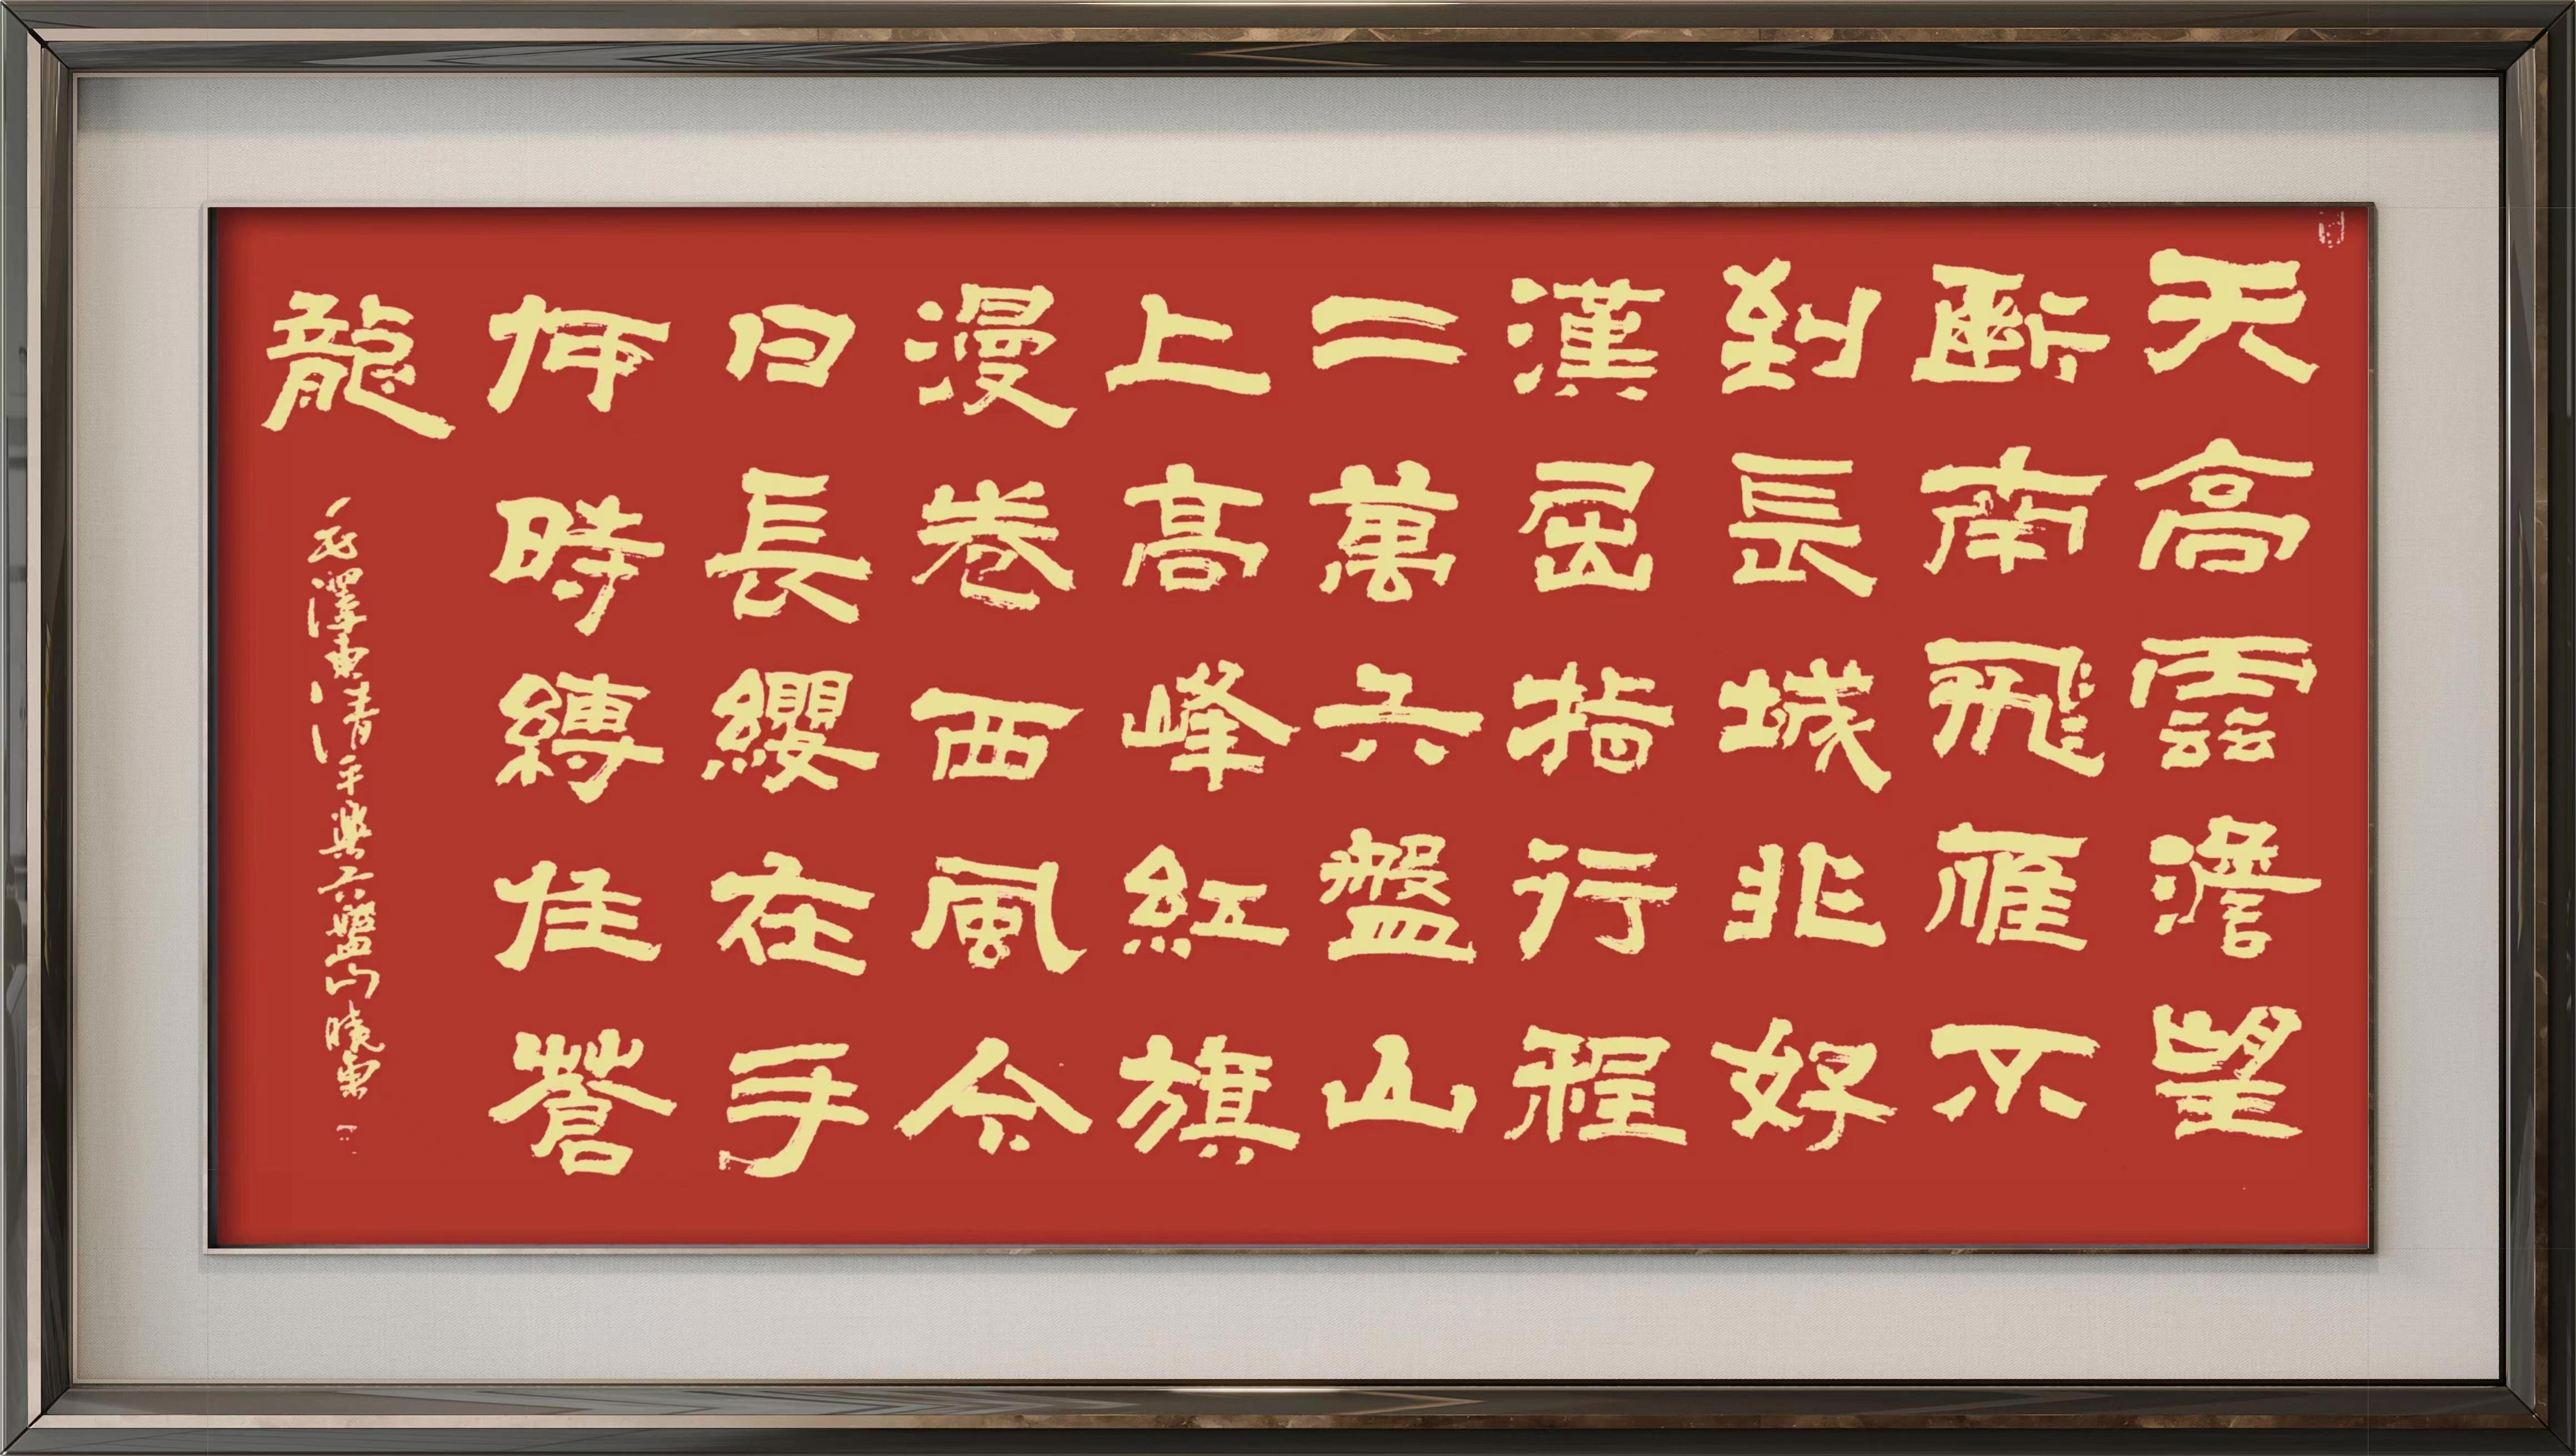 天高雲澹望
斷南飛雁不
到長城非好
漢屈指行程
二萬六盤山
上高峰紅旗
漫卷西風今
日長纓在手
何時縛住蒼
龍
毛澤東清平樂六盤山曉東